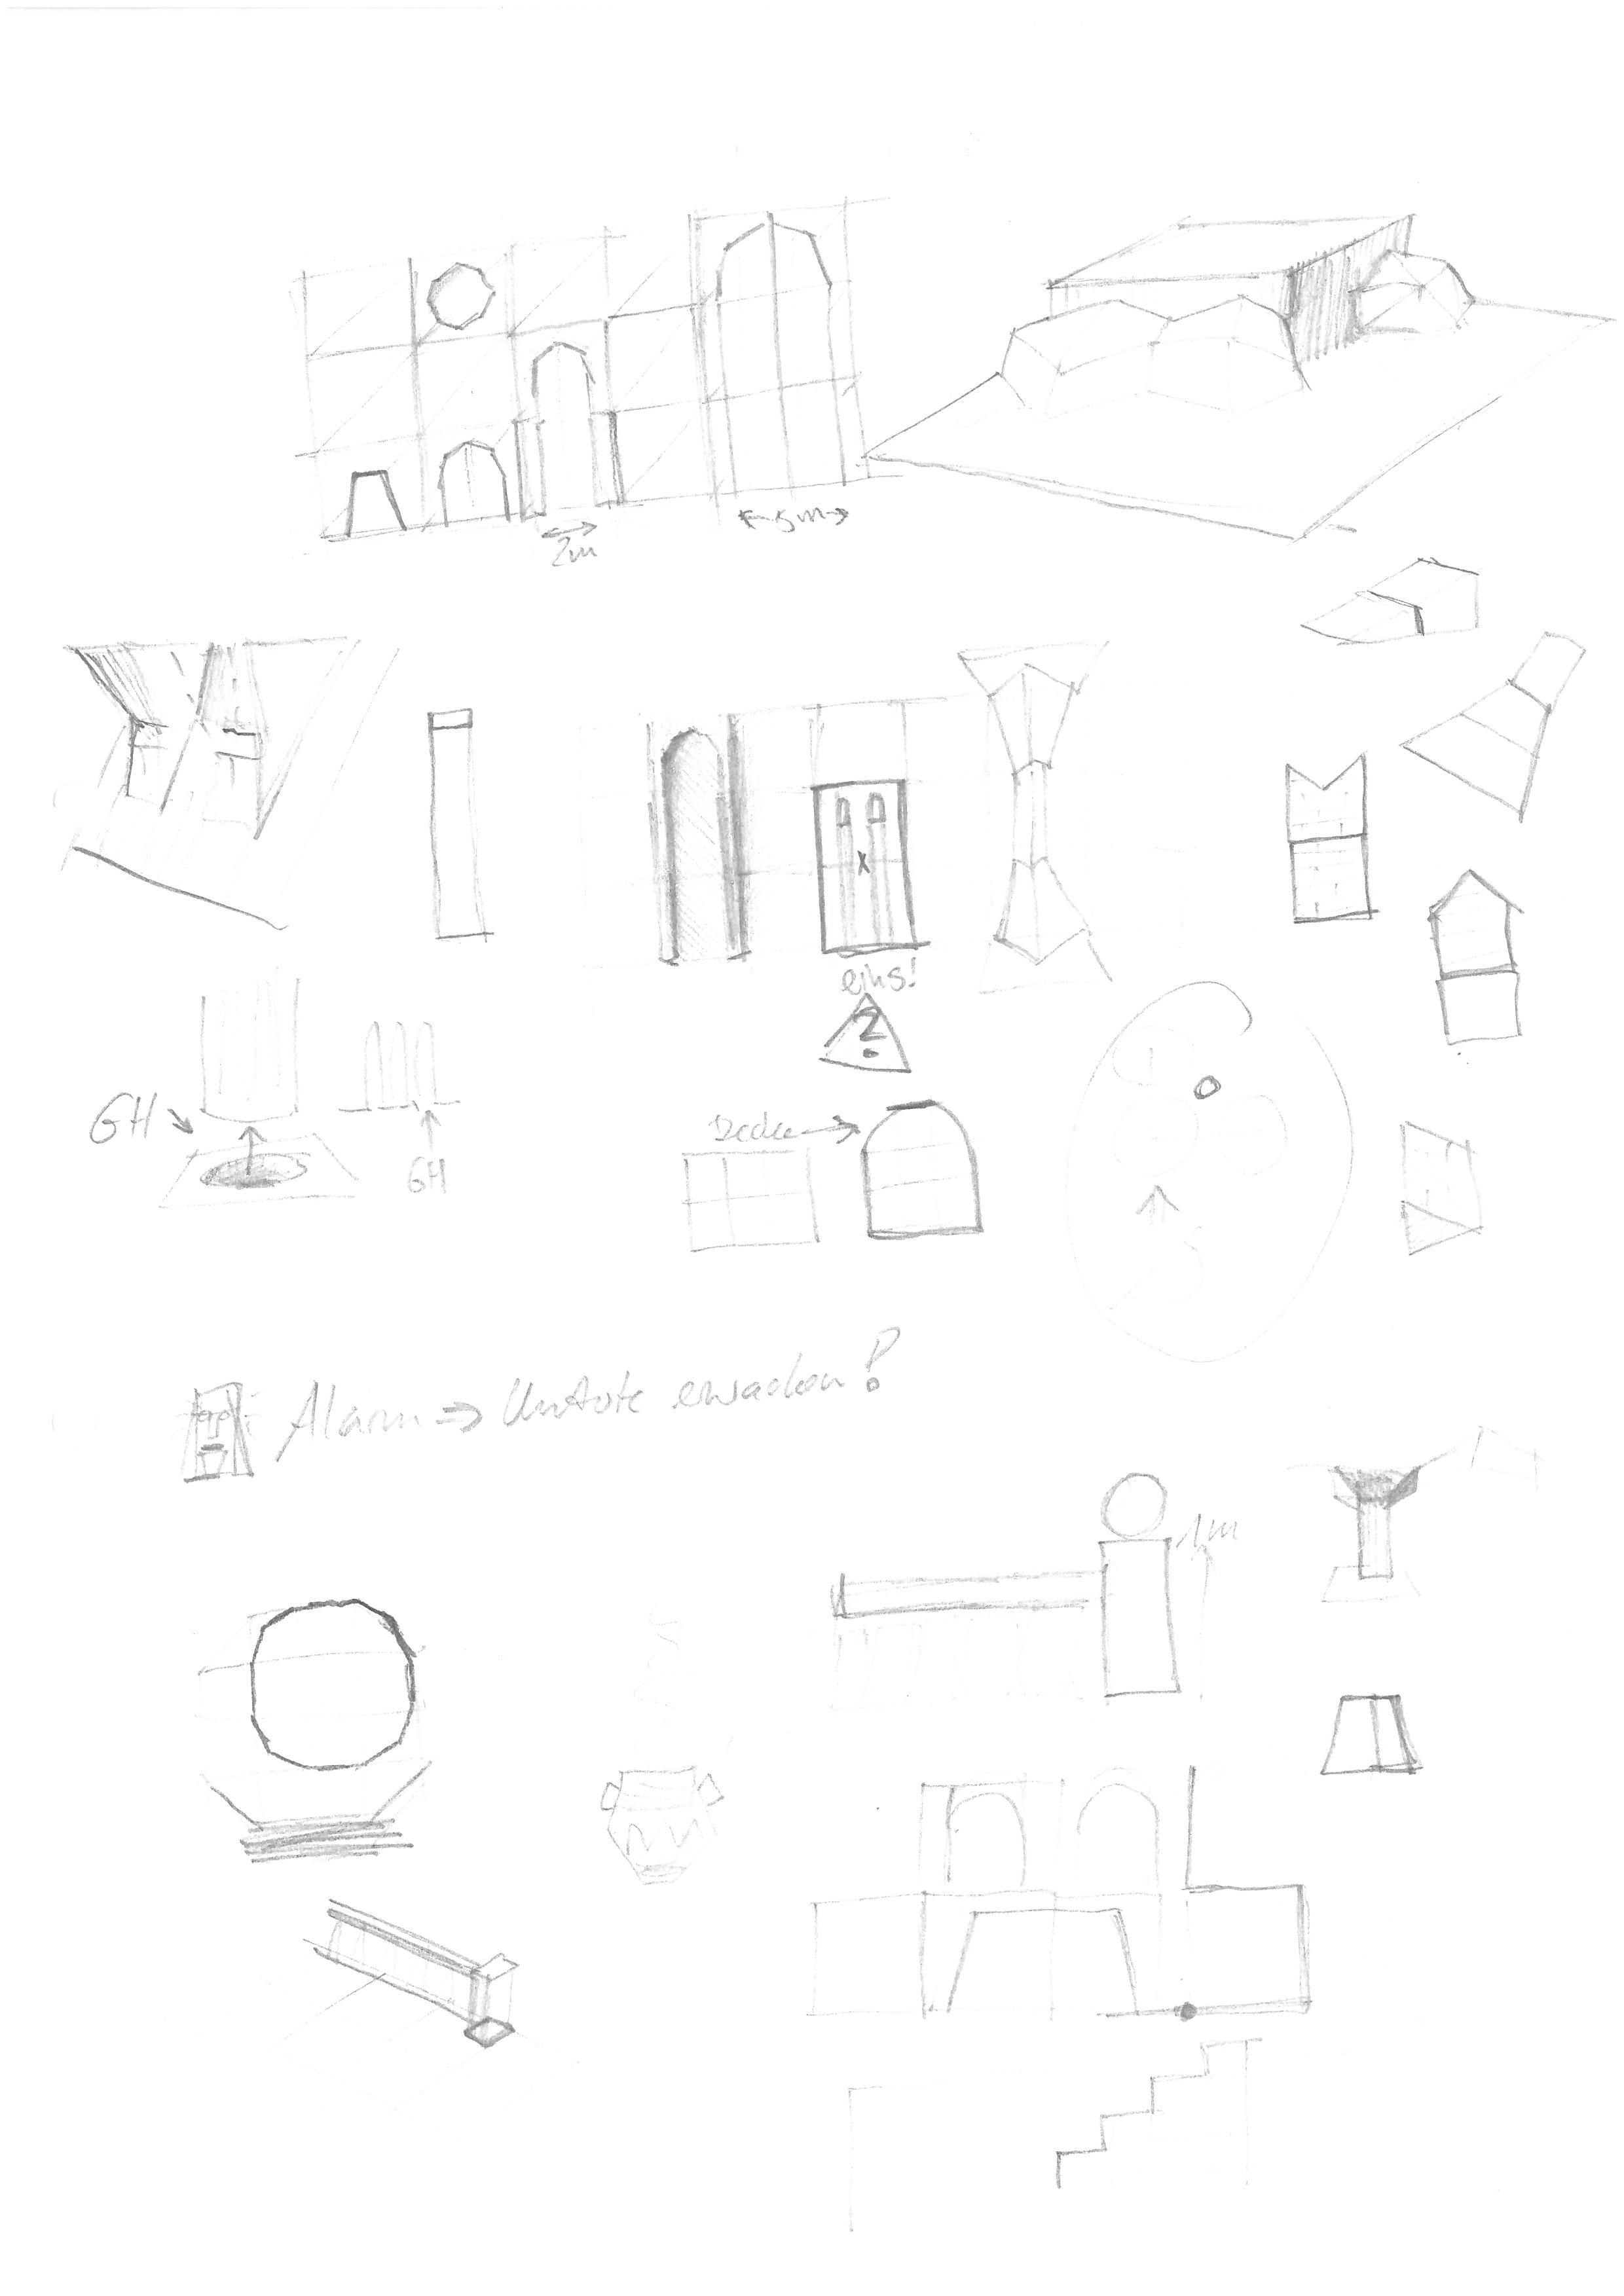 2m
5m
eins!
2
GH
GH
Decke
Alarm => Untote erwachen!
1m